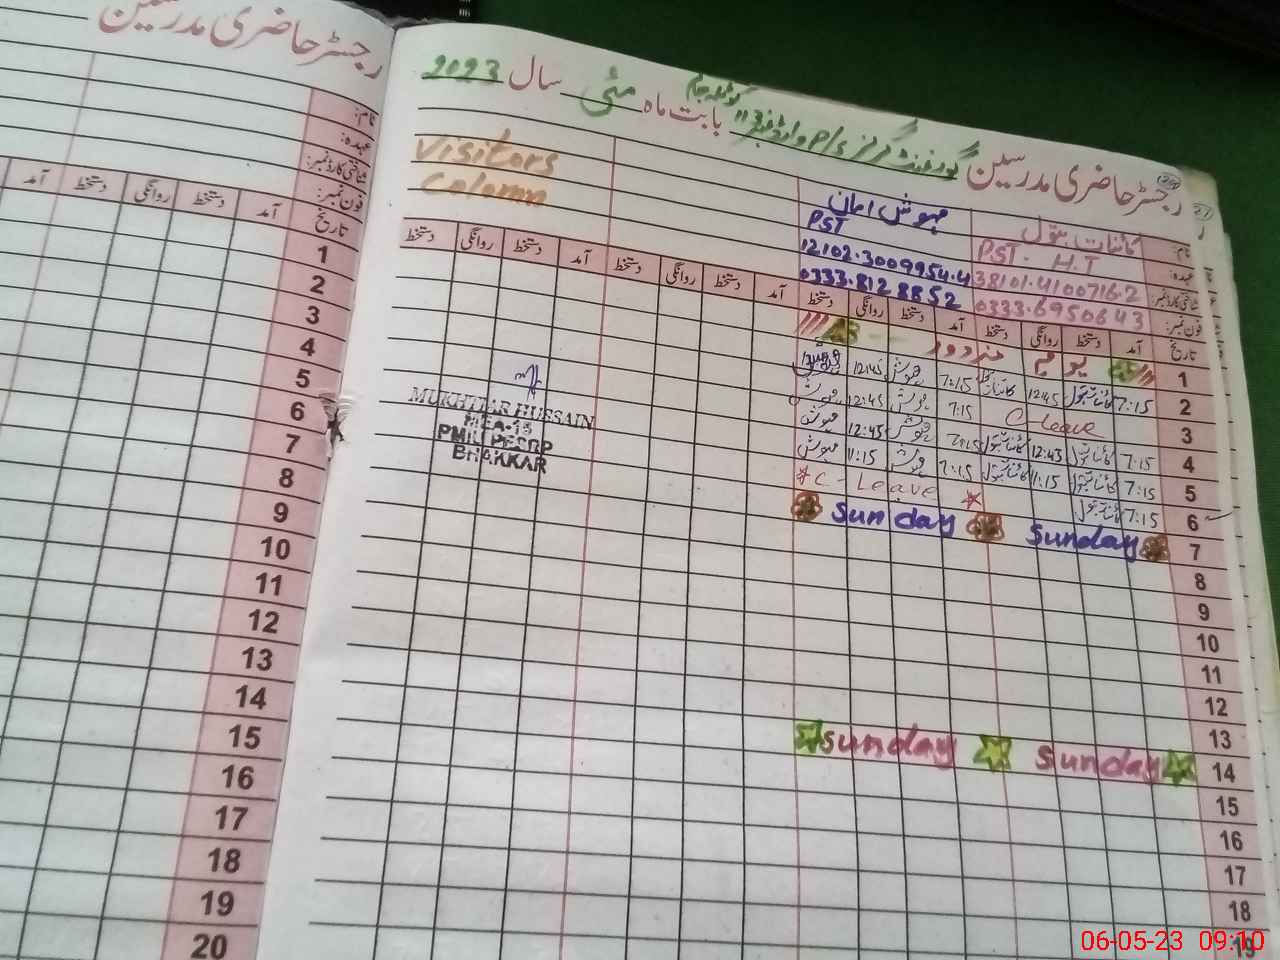 رجسٹر حاضری مدرسین
نام:
عہدہ:
شناختی کارڈ نمبر:
فون نمبر:
تاریخ
آمد دستخط روانگی دستخط آمد
1
2
3
4
5
6
7
8
9
10
11
12
13
14
15
16
17
18
19
20
رجسٹر حاضری مدرسین گورنمنٹ گرلز P/S وارڈ نمبر 3 بابت ماہ مئی سال 2023
Visitors
Column
نام: کائنات بتول مہوش امان
عہدہ: PST. H.T PST
شناختی کارڈ نمبر: 38101-4100716-2 12102-3009954-4
فون نمبر: 0333-6950643 0333-8128852
تاریخ آمد دستخط روانگی دستخط آمد دستخط روانگی دستخط آمد دستخط روانگی دستخط آمد دستخط روانگی دستخط
1 یوم مزدور
2 7:15 کائنات بتول 12:45 7:15 مہوش 12:45
3 C-leave 7:15 مہوش 12:45 مہوش
4 7:15 کائنات بتول 12:45 کائنات بتول 7:15 مہوش 12:45 مہوش
5 7:15 کائنات بتول 11:15 کائنات بتول 7:15 مہوش 11:15 مہوش
6 7:15 کائنات بتول C-Leave
7 Sunday Sunday
8
9
10
11
12
13
14 Sunday Sunday
15
16
17
18
19
MUKHTIAR HUSSAIN
MEA-15
PMIU PESRP
BHAKKAR
06-05-23 09:10